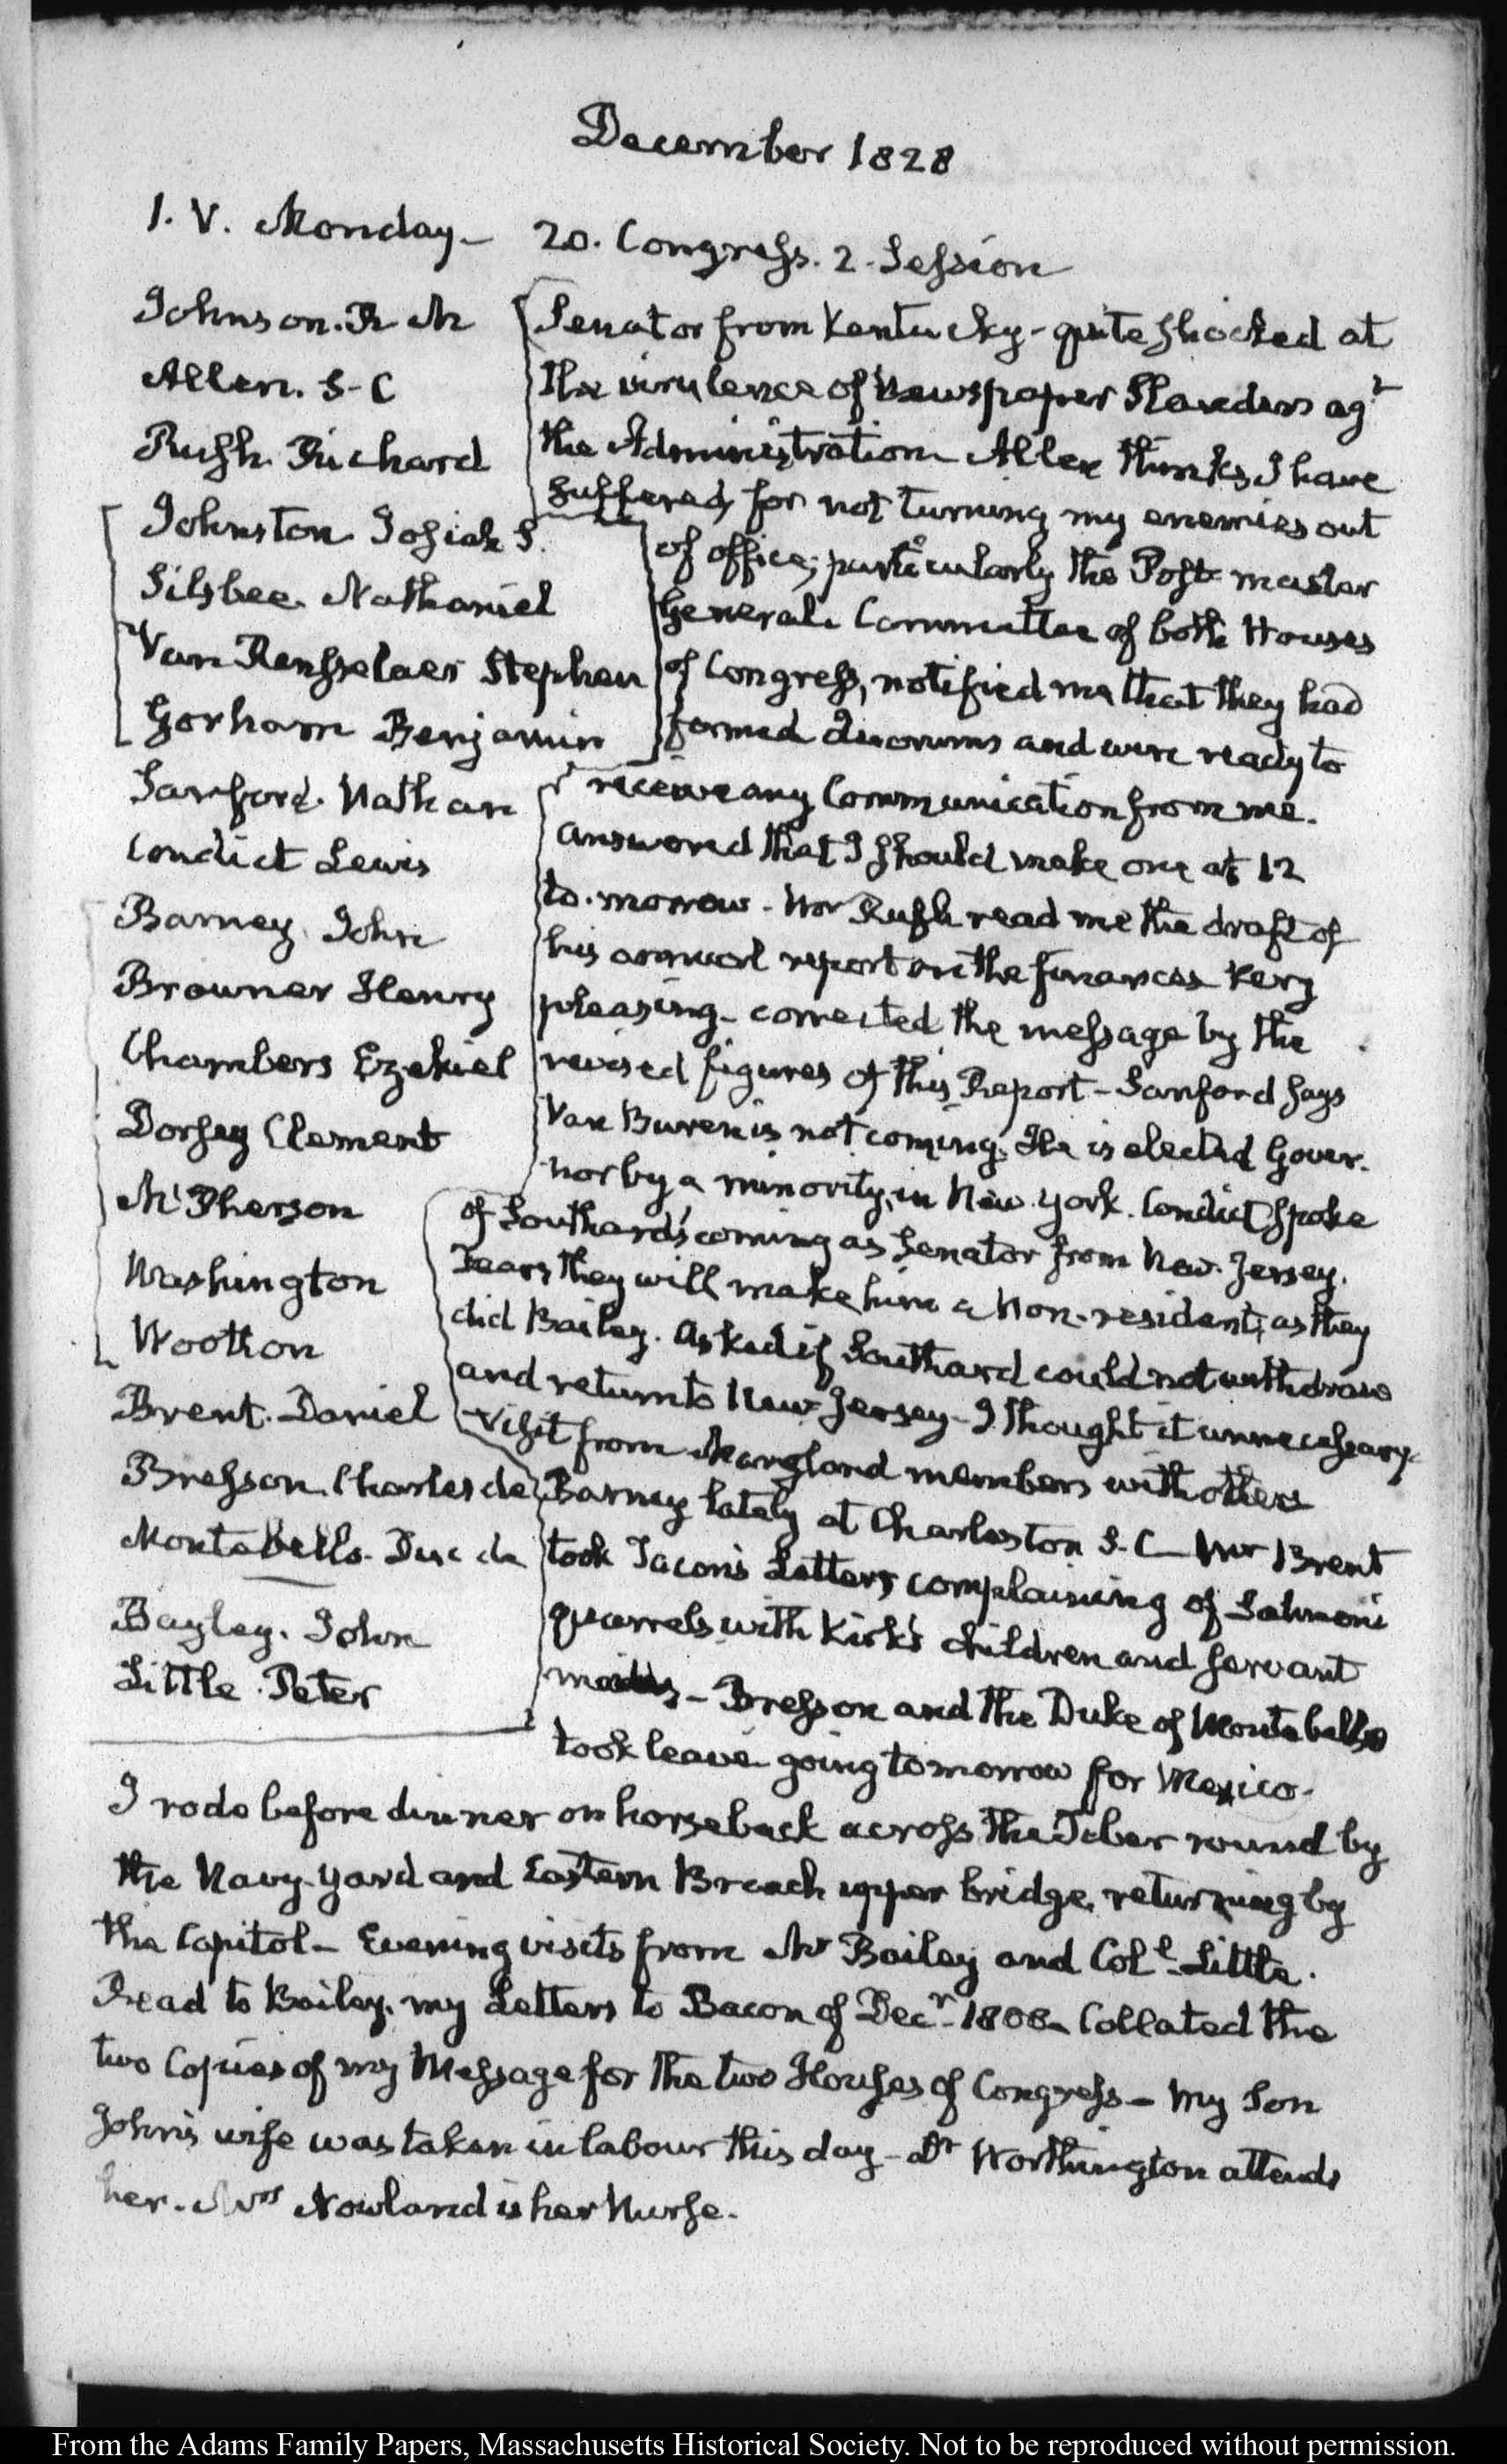 December 1828
1. V. Monday_ 20. Congress. 2. Session
Johnson. R M
Allen. S-C
Rush. Richard
Johnston Josiah S.
Silsbee. Nathaniel
Van Rensselaer Stephen
Gorham Benjamin
Sanford. Nathan
Condict Lewis
Barney. John
Browner Henry
Chambers Ezekiel
Dorsey Clement
McPherson
Washington
Wootton
Brent. Daniel
Bresson. Charles de
Montebello. Duc de
Bayley. John
Little. Peter
Senator from Kentucky - quite shocked at
the virulence of Newspaper Slanders agt
the Administration Allen thinks I have
suffered for not turning my enemies out
of office; particularly the Post master
General. Committee of both Houses
of Congress, notified me that they had
formed Quorums and were ready to
receive any Communication from me.
answered that I should make one at 12
to-morrow. Mr Rush read me the draft of
his annual report on the finances very
pleasing_ corrected the message by the
revised figures of this Report - Sanford says
Van Buren is not coming. He is elected Gover-
nor by a minority, in New York. Condict spoke
of Southard's coming as Senator from New-Jersey.
Fears they will make him a Non-resident, as they
did Bailey. Asked if Southard could not withdraw
and return to New-Jersey - I thought it unnecessary.
Visit from Maryland members with others
Barney lately at Charleston S-C_ Mr Brent
took Tacon's Letters complaining of Salmon's
quarrels with Kirk's children and servant
maids - Bresson and the Duke of Montebello
took leave going tomorrow for Mexico.
I rode before dinner on horseback across the Tiber round by
the Navy-Yard and Eastern Branch upper bridge, returning by
the Capitol_ Evening visits from Mr Bailey and Coll Little.
Read to Bailey, my Letters to Bacon of Decr 1808_ Collated the
two Copies of my Message for the two Houses of Congress_ My Son
John's wife was taken in labour this day - Dr Worthington attends
her. Mrs Nowland is her Nurse.
From the Adams Family Papers, Massachusetts Historical Society. Not to be reproduced without permission.